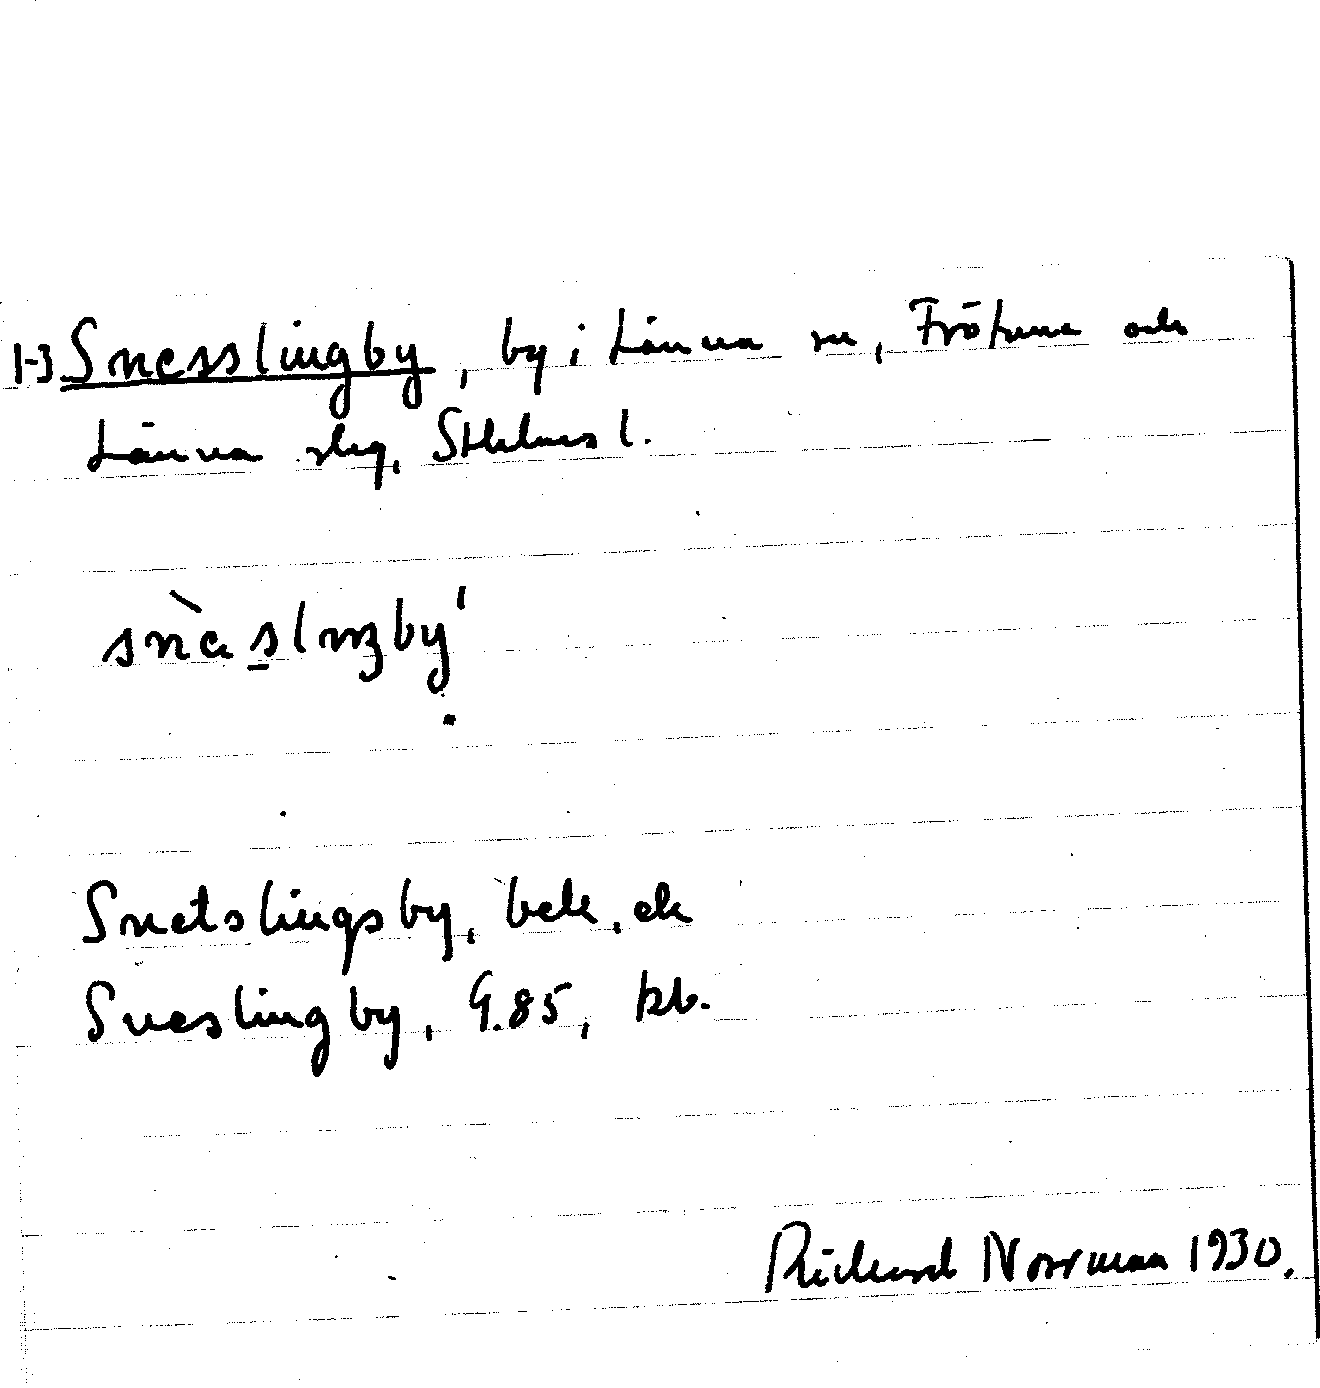 1-3 Snesslingby, by i Länna sn, Frötuna och
Länna slg, Sthlms l.
Snetslingsby, bete, ek
Sneslingby, G.85, kb.
Richard Norrman 1930.